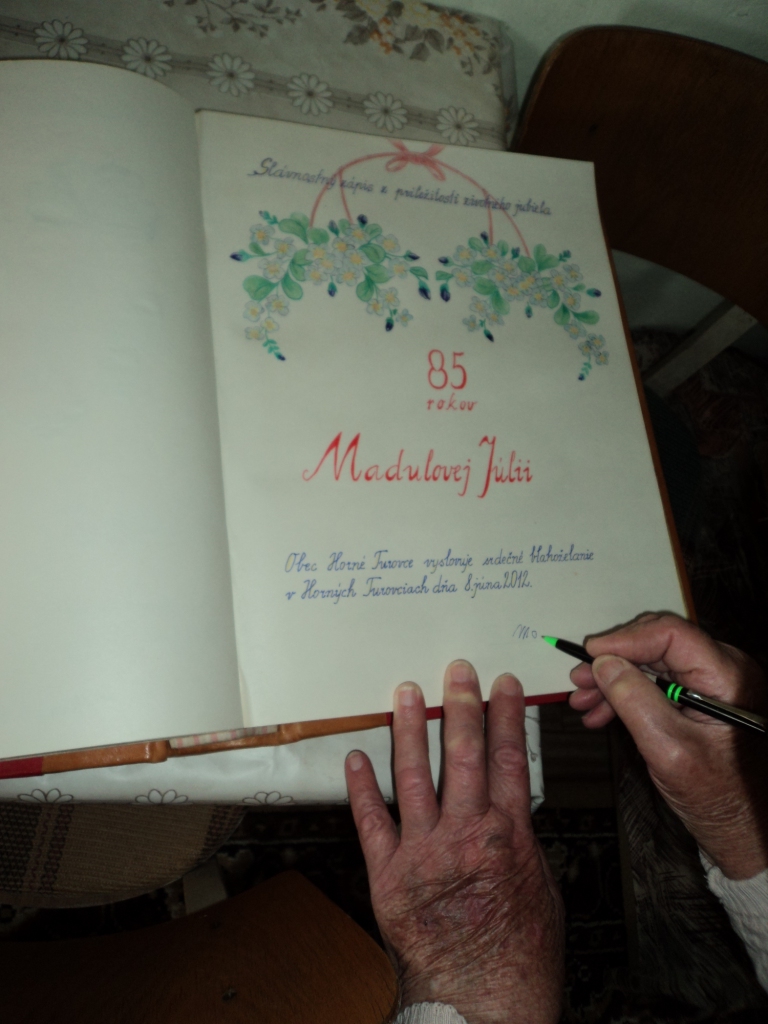 Slávnostný zápis z príležitosti životného jubilea
85
rokov
Madulovej Júlii
Obec Horné Turovce vyslovuje srdečné blahoželanie
v Horných Turovciach dňa 8.júna 2012.
Mo